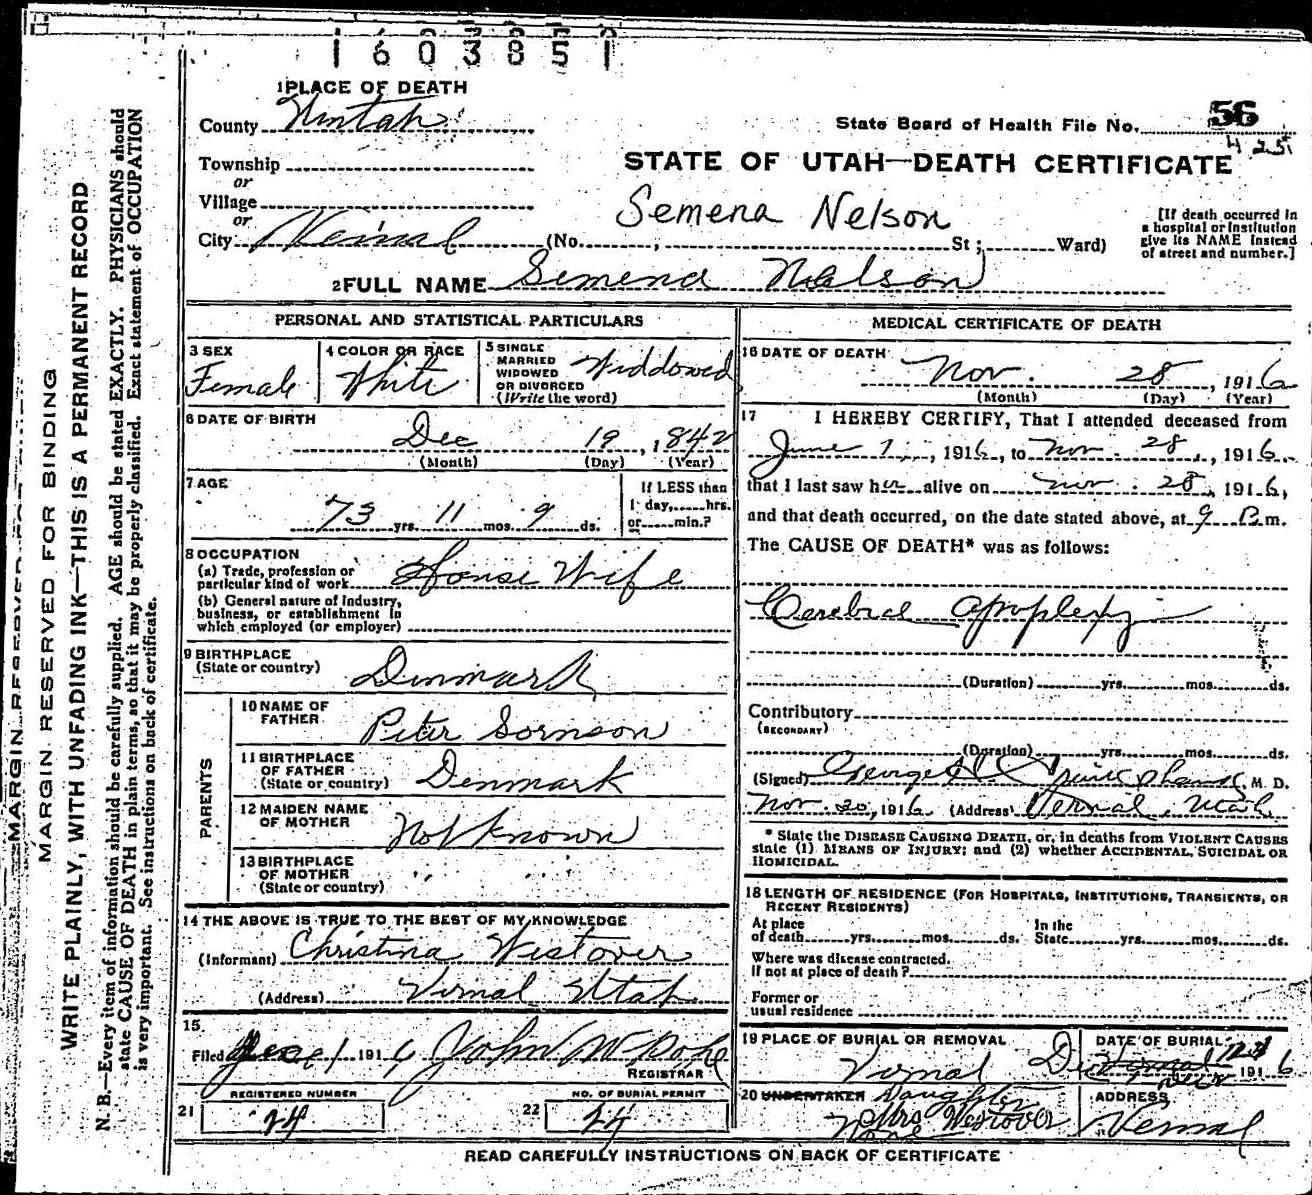 1603851
1 PLACE OF DEATH
County Uintah
State Board of Health File No. 56
425
Township
or
Village
or
City Vernal (No. , St ; Ward)
STATE OF UTAH—DEATH CERTIFICATE
Semena Nelson
[If death occurred in
a hospital or institution
give its NAME instead
of street and number.]
2 FULL NAME Semena Nelson
MARGIN RESERVED FOR BINDING
MARGIN RESERVED FOR BINDING
WRITE PLAINLY, WITH UNFADING INK—THIS IS A PERMANENT RECORD
N. B.—Every item of information should be carefully supplied. AGE should be stated EXACTLY. PHYSICIANS should
state CAUSE OF DEATH in plain terms, so that it may be properly classified. Exact statement of OCCUPATION
is very important. See instructions on back of certificate.
PERSONAL AND STATISTICAL PARTICULARS
3 SEX
Female
4 COLOR OR RACE
White
5 SINGLE
MARRIED
WIDOWED
OR DIVORCED
(Write the word)
Widdowed
6 DATE OF BIRTH
Dec 19, 1842
(Month) (Day) (Year)
7 AGE
73 yrs. 11 mos. 9 ds.
If LESS than
1 day, hrs.
or min.?
8 OCCUPATION
(a) Trade, profession or
particular kind of work House Wife
(b) General nature of industry,
business, or establishment in
which employed (or employer)
9 BIRTHPLACE
(State or country) Denmark
PARENTS
10 NAME OF
FATHER Peter Sornson
11 BIRTHPLACE
OF FATHER
(State or country) Denmark
12 MAIDEN NAME
OF MOTHER Not Known
13 BIRTHPLACE
OF MOTHER
(State or country) " "
14 THE ABOVE IS TRUE TO THE BEST OF MY KNOWLEDGE
(Informant) Christina Westover
(Address) Vernal Utah
15
Filed Dec 1 1916 John W Pope
REGISTRAR
REGISTERED NUMBER
21 24
NO. OF BURIAL PERMIT
22 24
MEDICAL CERTIFICATE OF DEATH
16 DATE OF DEATH
Nov. 28, 1916
(Month) (Day) (Year)
17 I HEREBY CERTIFY, That I attended deceased from
June 1, 1916, to Nov. 28, 1916.
that I last saw her alive on Nov. 28, 1916,
and that death occurred, on the date stated above, at 9 P.m.
The CAUSE OF DEATH* was as follows:
Cerebral Apoplexy
(Duration) yrs. mos. ds.
Contributory
(SECONDARY)
(Duration) yrs. mos. ds.
(Signed) George M. D.
Nov. 30, 1916 (Address) Vernal, Utah
* State the DISEASE CAUSING DEATH, or, in deaths from VIOLENT CAUSES
state (1) MEANS OF INJURY; and (2) whether ACCIDENTAL, SUICIDAL OR
HOMICIDAL.
18 LENGTH OF RESIDENCE (FOR HOSPITALS, INSTITUTIONS, TRANSIENTS, OR
RECENT RESIDENTS)
At place
of death yrs. mos. ds.
In the
State yrs. mos. ds.
Where was disease contracted.
If not at place of death?
Former or
usual residence
19 PLACE OF BURIAL OR REMOVAL
Vernal
DATE OF BURIAL
1916
20 UNDERTAKER Daughter
Mrs Westover
None
ADDRESS
Vernal
READ CAREFULLY INSTRUCTIONS ON BACK OF CERTIFICATE